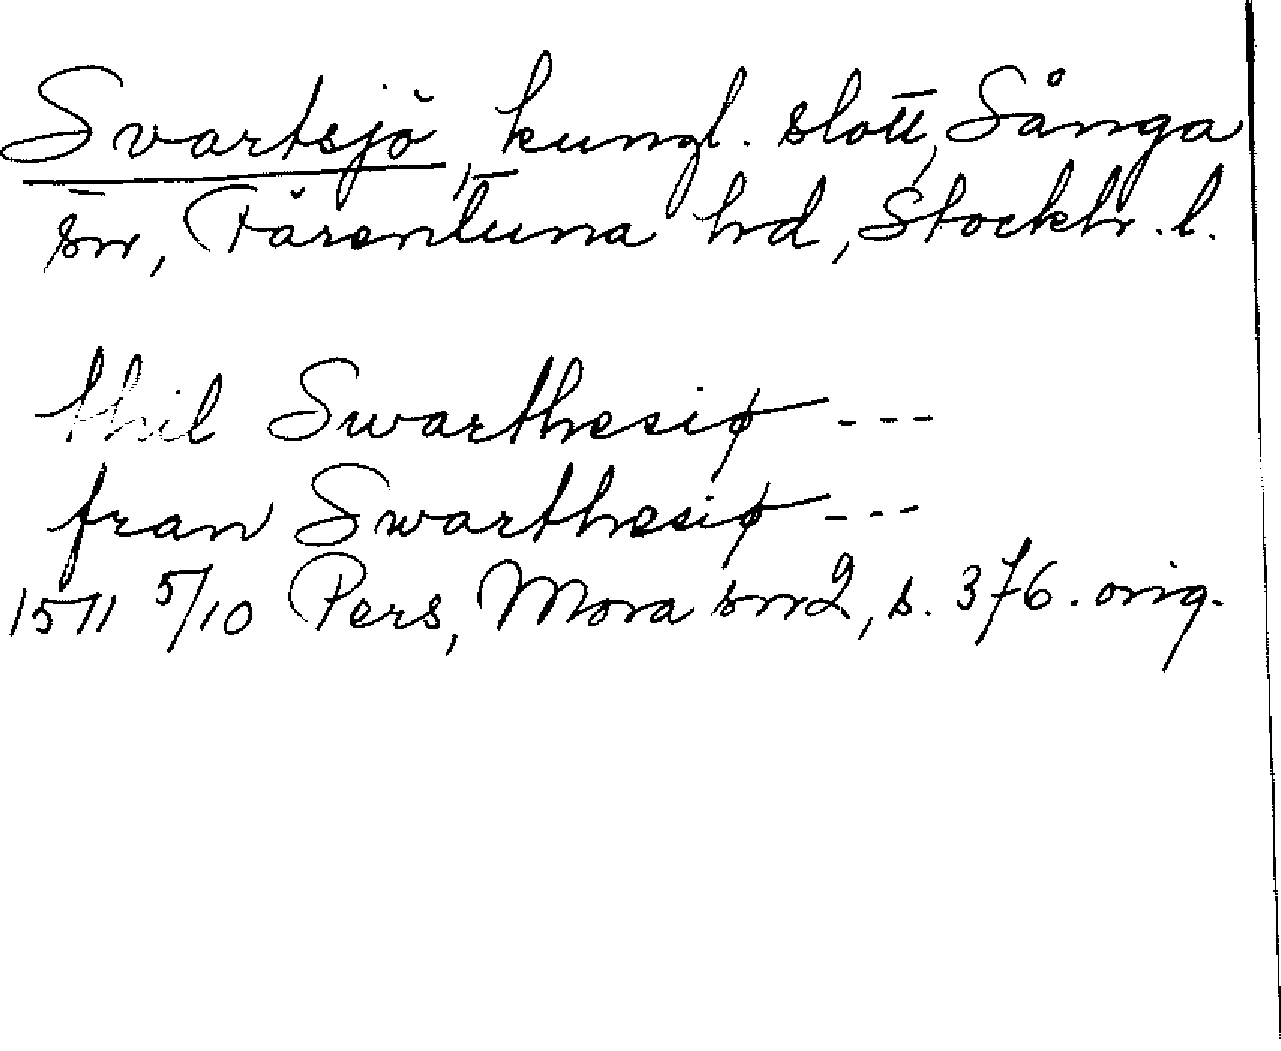 Svartsjö, kungl. slott, Sånga
sn, Färentuna hd, Stockh. l.
thil Swarthesiø ---
fran Swarthesiø ---
1571 5/10 Pers, Mora sn 2, s. 376. orig.